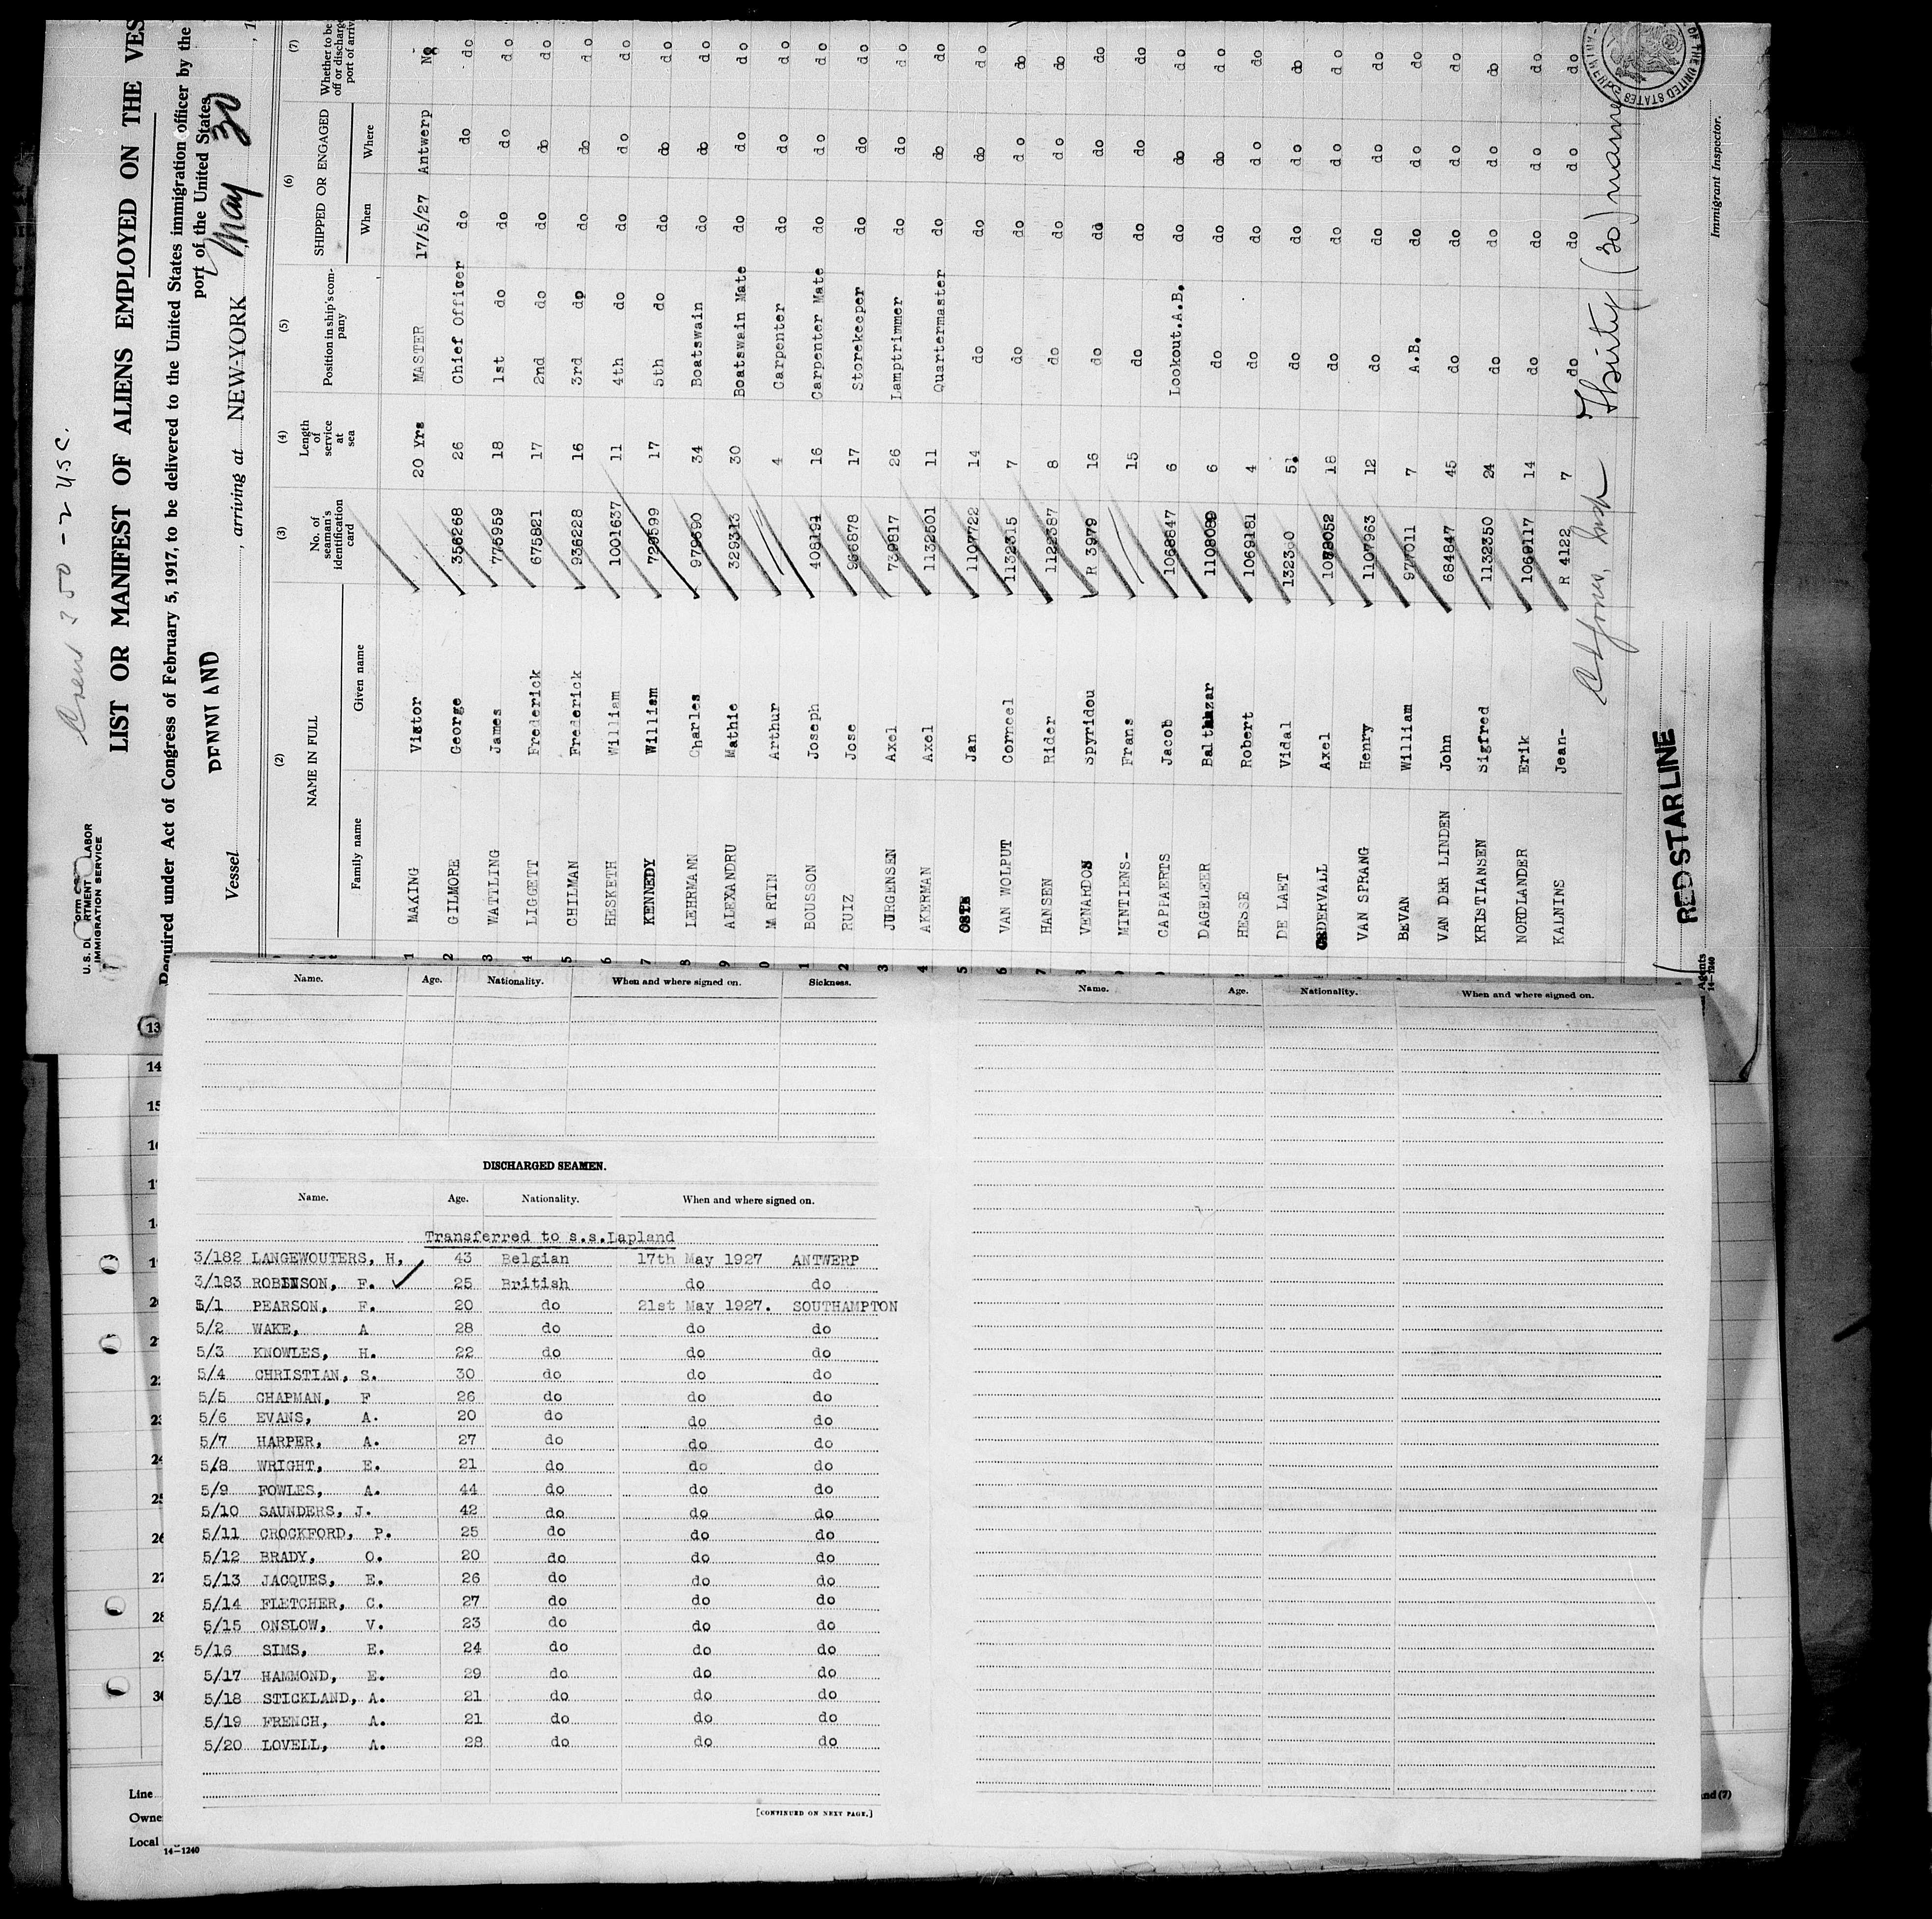 Crew 300 - 2 USC.
U.S. DEPARTMENT LABOR
IMMIGRATION SERVICE
LIST OR MANIFEST OF ALIENS EMPLOYED ON THE VES
Required under Act of Congress of February 5, 1917, to be delivered to the United States immigration officer by the
port of the United States
Vessel , arriving at NEW-YORK , May 30 , 1
(2) (3) (4) (5) (6) (7)
NAME IN FULL No. of seaman's identification card Length of service at sea Position in ship's company SHIPPED OR ENGAGED Whether to be
off or discharge
port of arriv
Family name Given name When Where
1 MAKING Victor 20 Yrs MASTER 17/5/27 Antwerp No
2 GILMORE George 356268 26 Chief Officer do do do
3 WATTLING James 775959 18 1st do do do do
4 LIGGETT Frederick 675821 17 2nd do do do do
5 CHILMAN Frederick 936228 16 3rd do do do do
6 HESKETH William 1001637 11 4th do do do do
7 KENNEDY William 720599 17 5th do do do do
8 LEHRMANN Charles 979690 34 Boatswain do do do
9 ALEXANDRU Mathie 329313 30 Boatswain Mate do do do
0 MARTIN Arthur 4 Carpenter do do do
1 BOUSSON Joseph 408191 16 Carpenter Mate do do do
2 RUIZ Jose 966878 17 Storekeeper do do do
3 JURGENSEN Axel 739817 26 Lamptrimmer do do do
4 AKERMAN Axel 1132501 11 Quartermaster do do do
5 OSTE Jan 1107722 14 do do do do
6 VAN WOLPUT Corneel 1132315 7 do do do do
7 HANSEN Rider 1122387 8 do do do do
8 VENARDOS Spyridou R 3979 16 do do do do
9 MINTIENS- Frans 15 do do do do
CAPPAERTS Jacob 1068647 6 Lookout.A.B. do do do
DAGELEER Balthazar 1108089 6 do do do do
HESSE Robert 1069181 4 do do do do
DE LAET Vidal 132360 5 do do do do
CEDERVALL Axel 1078052 18 do do do do
VAN SPRANG Henry 1107963 12 do do do do
BEVAN William 977011 7 A.B. do do do
VAN DER LINDEN John 684847 45 do do do do
KRISTIANSEN Sigfred 1132350 24 do do do do
NORDLANDER Erik 1069117 14 do do do do
KALNINS Jean- R 4122 7 do do do do
Thirty (30) names
Immigrant Inspector.
RED STAR LINE
Agents
14-1240
Name. Age. Nationality. When and where signed on. Sickness.
Name. Age. Nationality. When and where signed on.
DISCHARGED SEAMEN.
Name. Age. Nationality. When and where signed on.
Transferred to s.s.Lapland
3/182 LANGEWOUTERS, H, 43 Belgian 17th May 1927 ANTWERP
3/183 ROBINSON, F. 25 British do do
5/1 PEARSON, F. 20 do 21st May 1927. SOUTHAMPTON
5/2 WAKE, A 28 do do do
5/3 KNOWLES, H. 22 do do do
5/4 CHRISTIAN, S. 30 do do do
5/5 CHAPMAN, F 26 do do do
5/6 EVANS, A. 20 do do do
5/7 HARPER, A. 27 do do do
5/8 WRIGHT, E. 21 do do do
5/9 FOWLES, A. 44 do do do
5/10 SAUNDERS, J. 42 do do do
5/11 CROCKFORD, P. 25 do do do
5/12 BRADY, O. 20 do do do
5/13 JACQUES, E. 26 do do do
5/14 FLETCHER, C. 27 do do do
5/15 ONSLOW, V. 23 do do do
5/16 SIMS, E. 24 do do do
5/17 HAMMOND, E. 29 do do do
5/18 STICKLAND, A. 21 do do do
5/19 FRENCH, A. 21 do do do
5/20 LOVELL, A. 28 do do do
[CONTINUED ON NEXT PAGE.]
13
14
15
Line
Owne
Local
14-1240
nd (7)